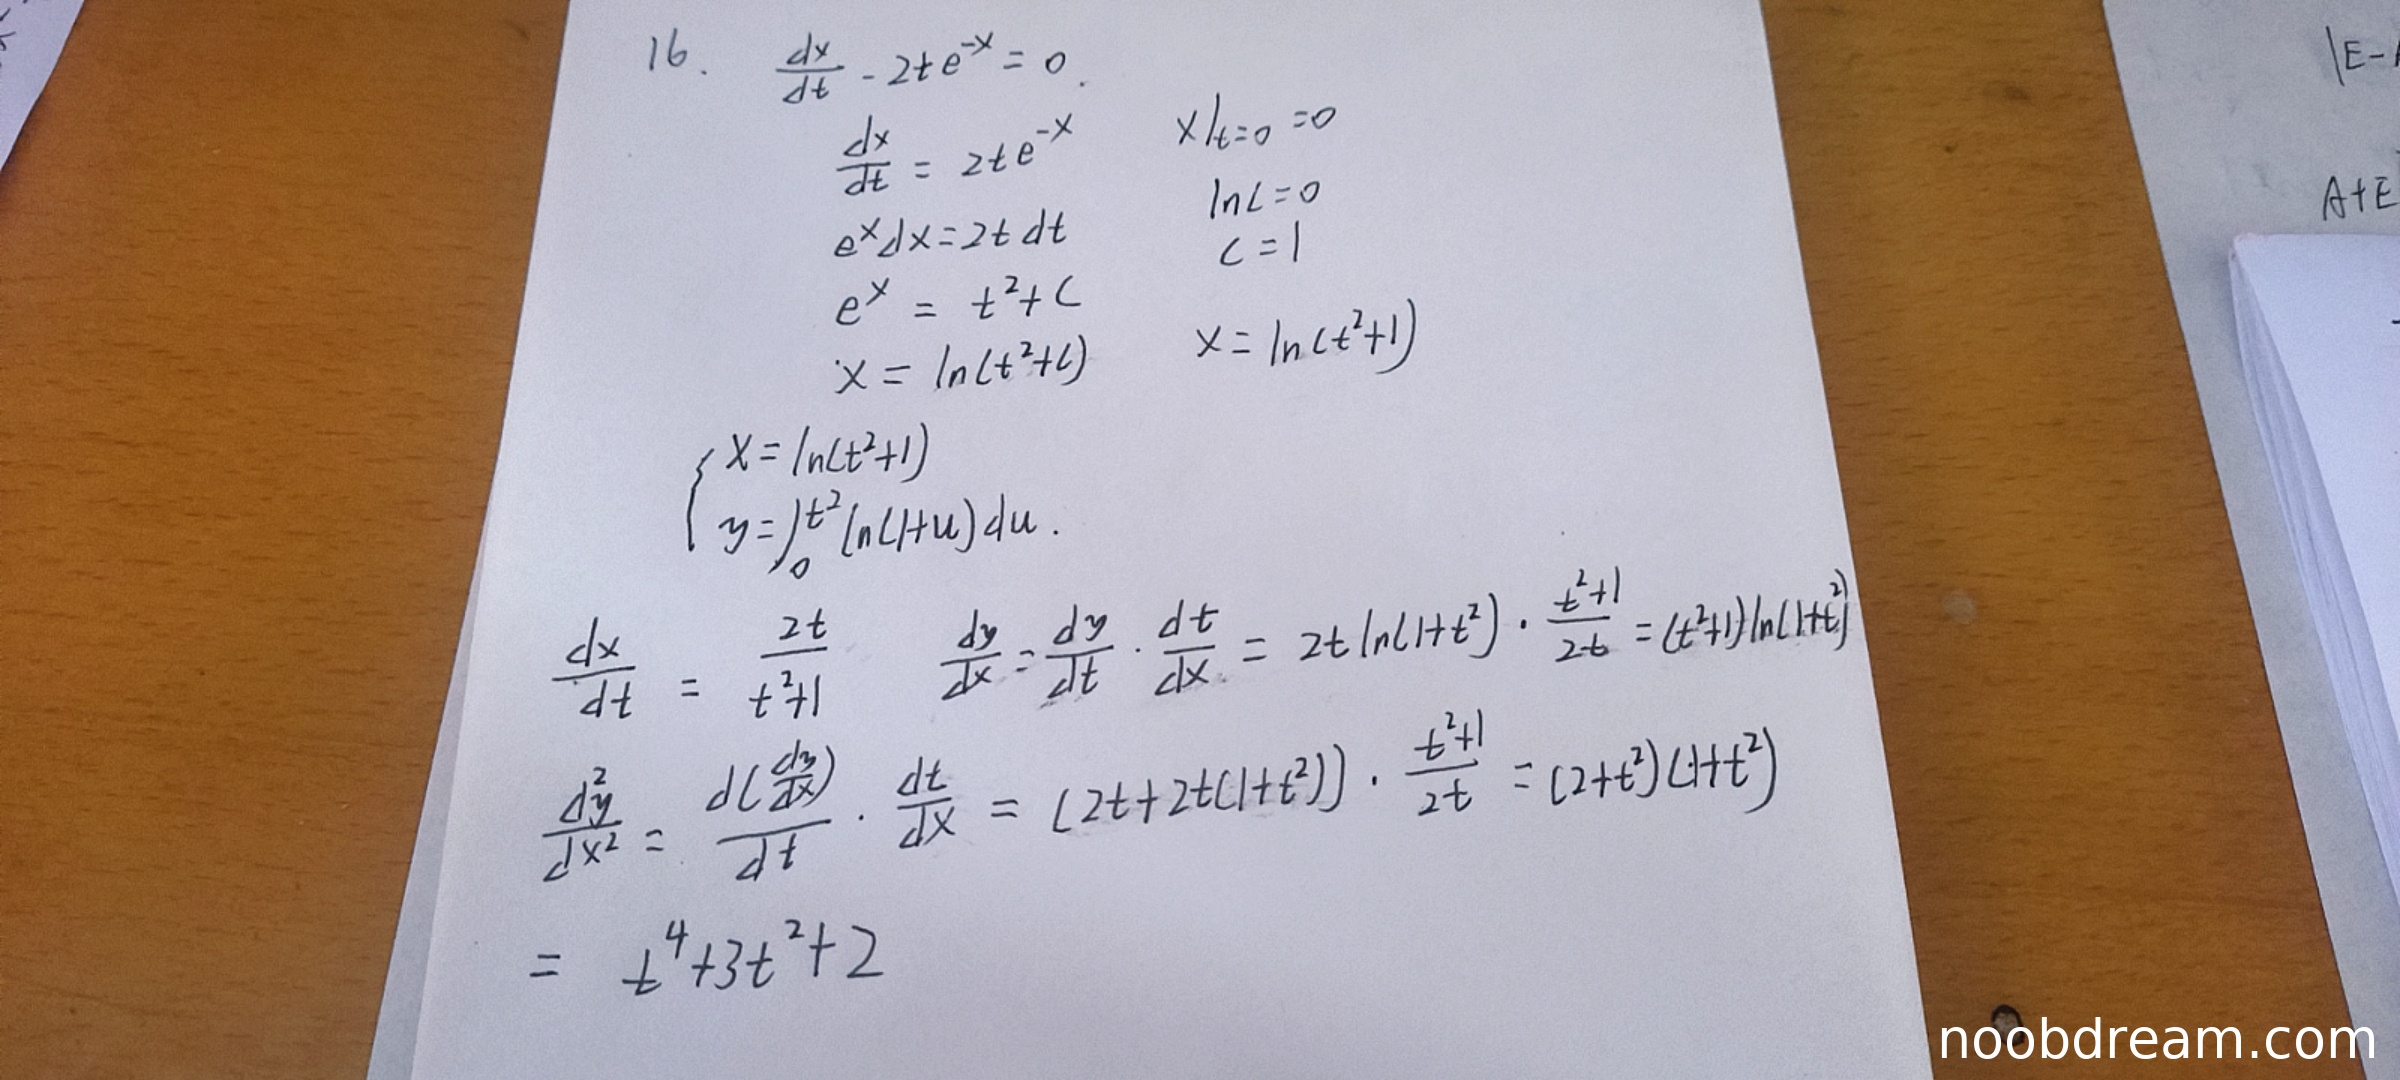 16. dx/dt - 2te^{-x} = 0.
dx/dt = 2te^{-x}
x|_{t=0} = 0
e^x dx = 2t dt
ln C = 0
C = 1
e^x = t² + C
x = ln(t²+C)
x = ln(t²+1)
{ x = ln(t²+1)
y = ∫_0^{t²} ln(1+u) du.
dx/dt = 2t/(t²+1)
dy/dx = dy/dt · dt/dx = 2t ln(1+t²) · (t²+1)/2t = (t²+1) ln(1+t²)
d²y/dx² = d(dy/dx)/dt · dt/dx = (2t+2t(1+t²)) · (t²+1)/2t = (2+t²)(1+t²)
= t⁴+3t²+2
|E-
A+E
noobdream.com